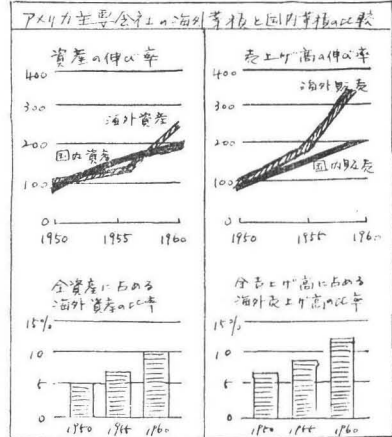 アメリカ主要会社の海外業積と国内業積の比較
資産の伸び率
400
300
200
100
0
海外資産
国内資産
1950 1955 1960
売上げ高の伸び率
400
300
200
100
0
海外販売
国内販売
1950 1955 1960
全資産に占める
海外資産の比率
15%
10
5
0
1950 1955 1960
全売上げ高に占める
海外売上げ高の比率
15%
10
5
0
1950 1955 1960